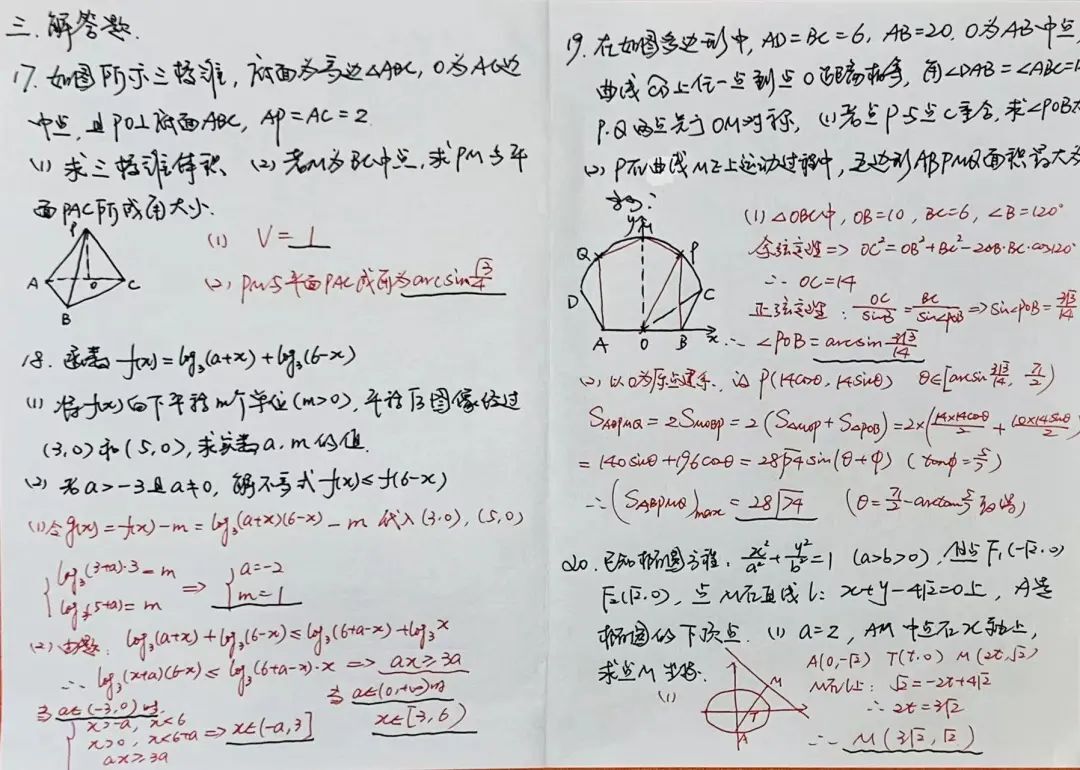 三.解答题.
17.如图所示三棱锥,底面为等边△ABC,O为AC边
中点,且PO⊥底面ABC,AP=AC=2.
(1)求三棱锥体积.(2)若M为BC中点,求PM与平
面PAC所成角大小.
P
A
O
C
B
(1) V=1
(2)PM与平面PAC成角为arcsin√3/4
18.函数f(x)=log₃(a+x)+log₃(6-x)
(1)将f(x)向下平移m个单位(m>0),平移后图像经过
(3,0)和(5,0),求实数a.m的值.
(2)若a>-3且a≠0,解不等式f(x)≤f(6-x)
(1)令g(x)=f(x)-m=log₃(a+x)(6-x)-m 代入(3,0),(5,0)
{log₃(3+a)·3=m
log₃(5+a)=m
⇒ {a=-2
m=1
(2)由题: log₃(a+x)+log₃(6-x)≤log₃(6+a-x)+log₃x
∴ log₃(x+a)(6-x)≤log₃(6+a-x)·x ⇒ ax≥3a
当a∈(-3,0)时.
{x>-a, x<6
x>0, x<6+a ⇒ x∈(-a,3]
ax≥3a
当a∈(0,+∞)时
x∈[3,6)
19.在如图多边形中,AD=BC=6,AB=20.O为AB中点,
曲线 上任一点到点O距离相等,角∠DAB=∠ABC=1
P.Q两点关于OM对称,(1)若点P与点C重合,求∠POB大
(2)P在曲线M上运动过程中,五边形ABPMQ面积最大为
多少?
y
M
Q
P
D
C
A
O
B
x
(1)△OBC中,OB=10,BC=6,∠B=120°
余弦定理⇒OC²=OB²+BC²-2OB·BC·cos120°
∴OC=14
正弦定理:OC/sinB=BC/sin∠POB⇒sin∠POB=3√3/14
∴∠POB=arcsin3√3/14
(2)以O为原点建系.设P(14cosθ,14sinθ) θ∈[arcsin3√3/14, π/2)
S_ABPMQ=2S_MOBP=2(S△MOP+S△POB)=2×(14×14cosθ/2+10×14sinθ/2)
=140sinθ+196cosθ=28√74sin(θ+φ) (tanφ=5/7)
∴(S_ABPMQ)max=28√74 (θ=π/2-arctan 取得)
20.已知椭圆方程:x²/a²+y²/b²=1 (a>b>0),焦点F₁(-√2,0)
F₂(√2,0),点M在直线l:x+y-4√2=0上,A是
椭圆的下顶点.(1)a=2,AM中点在x轴上,
求点M坐标.
(1)
M
T
A
A(0,-√2) T(t,0) M(2t,√2)
M在l上:√2=-2t+4√2
∴2t=3√2
∴M(3√2,√2)